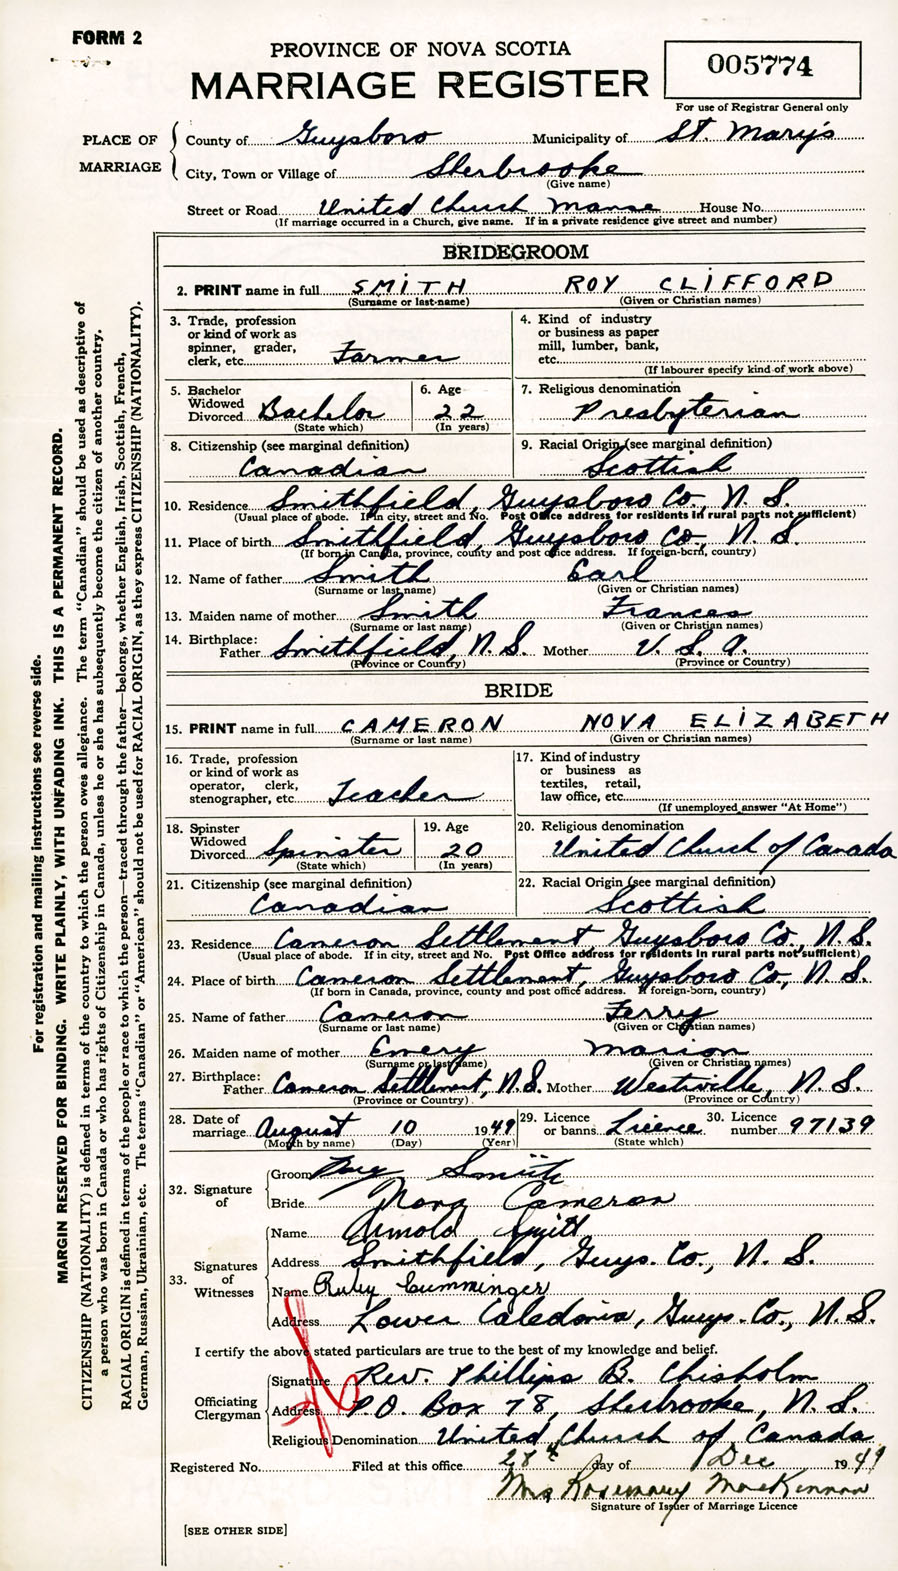 FORM 2
PROVINCE OF NOVA SCOTIA
MARRIAGE REGISTER
005774
For use of Registrar General only
PLACE OF MARRIAGE
County of Guysboro Municipality of St. Mary's
City, Town or Village of Sherbrooke
(Give name)
Street or Road United Church Manse House No.
(If marriage occurred in a Church, give name. If in a private residence give street and number)
BRIDEGROOM
2. PRINT name in full SMITH ROY CLIFFORD
(Surname or last-name) (Given or Christian names)
3. Trade, profession or kind of work as spinner, grader, clerk, etc. Farmer
4. Kind of industry or business as paper mill, lumber, bank, etc.
(If labourer specify kind of work above)
5. Bachelor Widowed Divorced Bachelor
(State which)
6. Age 22
(In years)
7. Religious denomination
Presbyterian
8. Citizenship (see marginal definition)
Canadian
9. Racial Origin (see marginal definition)
Scottish
10. Residence Smithfield, Guysboro Co., N. S.
(Usual place of abode. If in city, street and No. Post Office address for residents in rural parts not sufficient)
11. Place of birth Smithfield, Guysboro Co., N. S.
(If born in Canada, province, county and post office address. If foreign-born, country)
12. Name of father Smith Earl
(Surname or last name) (Given or Christian names)
13. Maiden name of mother Smith Frances
(Surname or last name) (Given or Christian names)
14. Birthplace:
Father Smithfield, N. S. Mother U. S. A.
(Province or Country) (Province or Country)
BRIDE
15. PRINT name in full CAMERON NOVA ELIZABETH
(Surname or last name) (Given or Christian names)
16. Trade, profession or kind of work as operator, clerk, stenographer, etc. Teacher
17. Kind of industry or business as textiles, retail, law office, etc.
(If unemployed answer "At Home")
18. Spinster Widowed Divorced Spinster
(State which)
19. Age 20
(In years)
20. Religious denomination
United Church of Canada
21. Citizenship (see marginal definition)
Canadian
22. Racial Origin (see marginal definition)
Scottish
23. Residence Cameron Settlement, Guysboro Co., N. S.
(Usual place of abode. If in city, street and No. Post Office address for residents in rural parts not sufficient)
24. Place of birth Cameron Settlement, Guysboro Co., N. S.
(If born in Canada, province, county and post office address. If foreign-born, country)
25. Name of father Cameron Ferry
(Surname or last name) (Given or Christian names)
26. Maiden name of mother Emery Marion
(Surname or last name) (Given or Christian names)
27. Birthplace:
Father Cameron Settlement, N. S. Mother Westville, N. S.
(Province or Country) (Province or Country)
28. Date of marriage August 10 1949
(Month by name) (Day) (Year)
29. Licence or banns Licence
(State which)
30. Licence number 97139
32. Signature of
Groom Roy Smith
Bride Nova Cameron
33. Signatures of Witnesses
Name Arnold
Address Smithfield, Guys. Co., N. S.
Name Ruby Cumminger
Address Lower Caledonia, Guys. Co., N. S.
I certify the above stated particulars are true to the best of my knowledge and belief.
Officiating Clergyman
Signature Rev. Phillips B. Chisholm
Address P.O. Box 78, Sherbrooke, N. S.
Religious Denomination United Church of Canada
Registered No. Filed at this office 28th day of Dec 1949
Mrs Rosemary MacKinnon
Signature of Issuer of Marriage Licence
[SEE OTHER SIDE]
For registration and mailing instructions see reverse side.
MARGIN RESERVED FOR BINDING. WRITE PLAINLY, WITH UNFADING INK. THIS IS A PERMANENT RECORD.
CITIZENSHIP (NATIONALITY) is defined in terms of the country to which the person owes allegiance. The term "Canadian" should be used as descriptive of
a person who was born in Canada or who has rights of Citizenship in Canada, unless he or she has subsequently become the citizen of another country.
RACIAL ORIGIN is defined in terms of the people or race to which the person—traced through the father—belongs, whether English, Irish, Scottish, French,
German, Russian, Ukrainian, etc. The terms "Canadian" or "American" should not be used for RACIAL ORIGIN, as they express CITIZENSHIP (NATIONALITY).